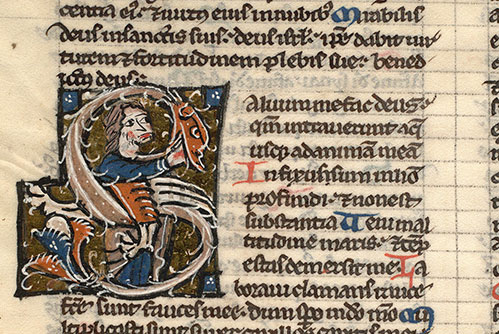 centia ei⁹. & uirtus eius in nubib⁹. Mirabilis
deus in sanctis suis. deus isrl. ipse dabit uir
tutem & fortitudinem plebis sue. bened
ictus deus.
Saluum me fac deus.
qm̄ intrauerunt aq̄
usq; ad animam meā
Infixus sum in limo
profundi. & non est
substantia. Ueni in al
titudine maris. & temp
estas demersit me. La
boraui clamans rauce
fcē sunt fauces mee. dum spero in
ltiplicati sunt